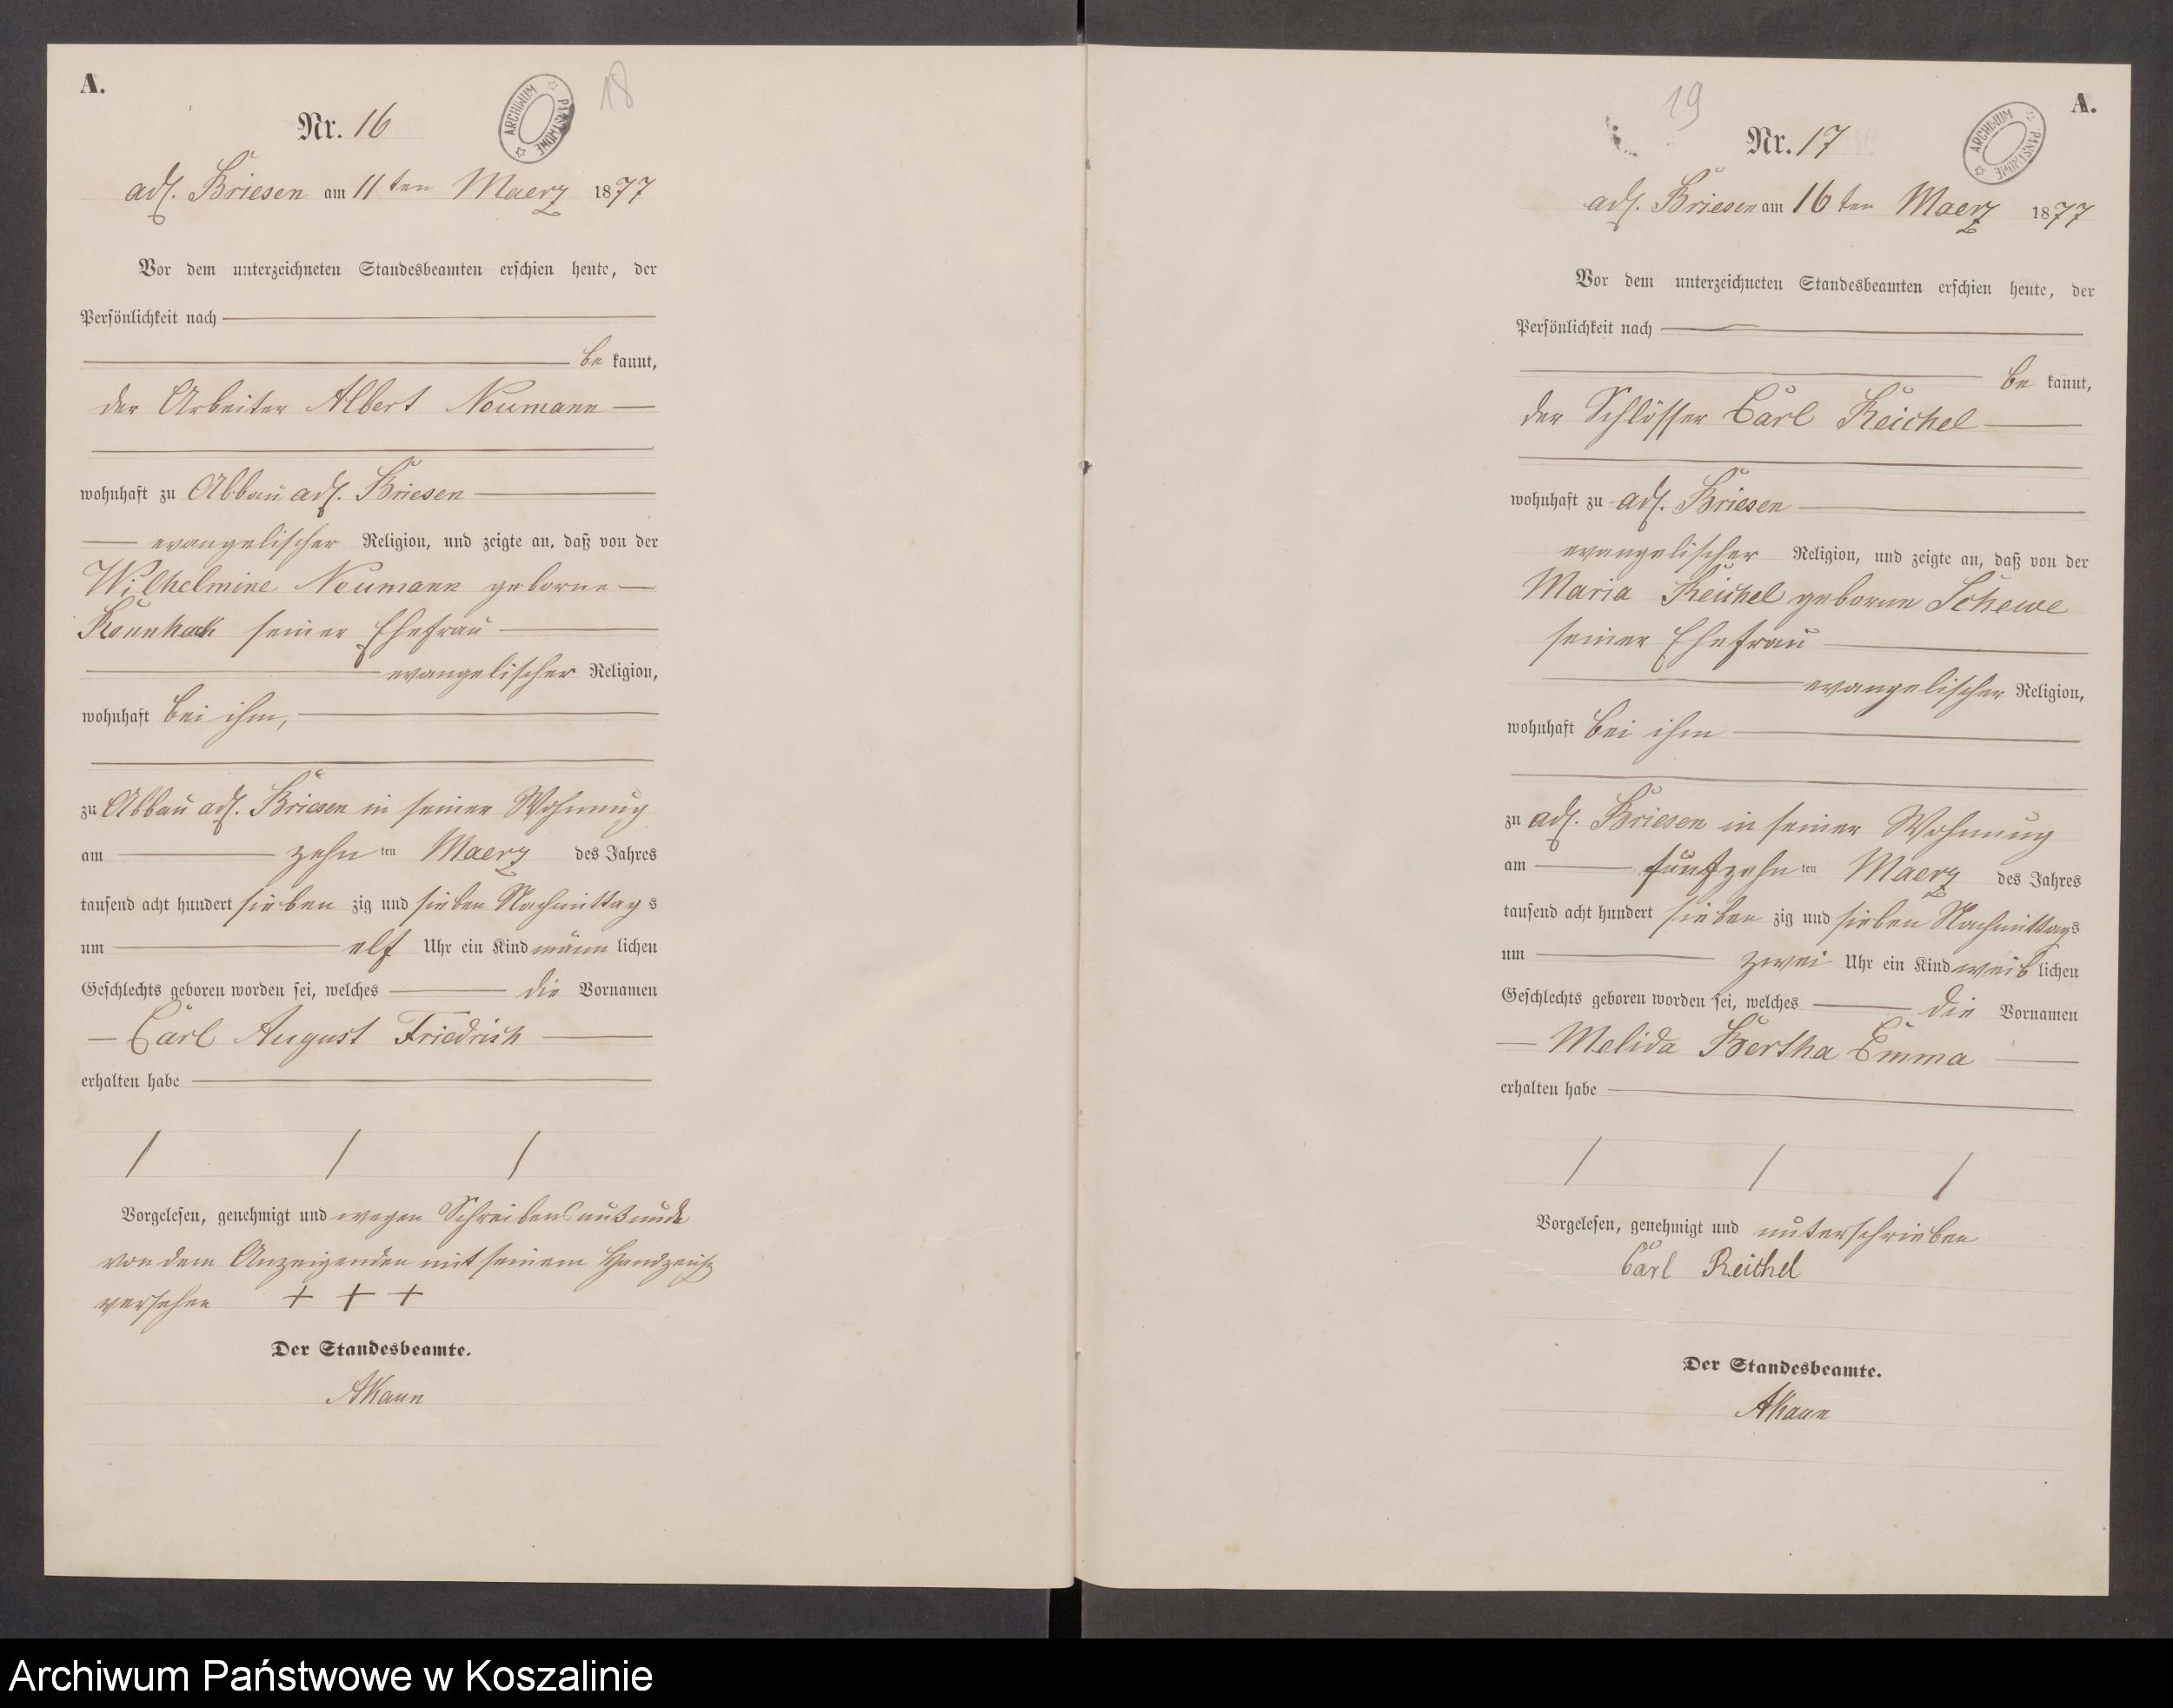 A.
18
Nr. 16
ARCHIWUM PAŃSTWOWE
adl. Briesen am 11ten Maerz 1877
Vor dem unterzeichneten Standesbeamten erschien heute, der
Persönlichkeit nach
be kannt,
der Arbeiter Albert Neumann
wohnhaft zu Abbau adl. Briesen
evangelischer Religion, und zeigte an, daß von der
Wilhelmine Neumann geborne
seiner Ehefrau
evangelischer Religion,
wohnhaft bei ihm,
zu Abbau adl. Briesen in seiner Wohnung
am zehn ten Maerz des Jahres
tausend acht hundert sieben zig und sieben Nachmittag s
um elf Uhr ein Kind männ lichen
Geschlechts geboren worden sei, welches die Vornamen
Carl August Friedrich
erhalten habe
Vorgelesen, genehmigt und wegen Schreibensunkunde
von dem Anzeigenden mit seinem Handzeichen
versehen + + +
Der Standesbeamte.
19
A.
Nr. 17
ARCHIWUM PAŃSTWOWE
adl. Briesen am 16ten Maerz 1877
Vor dem unterzeichneten Standesbeamten erschien heute, der
Persönlichkeit nach
be kannt,
der Schlosser Carl Reichel
wohnhaft zu adl. Briesen
evangelischer Religion, und zeigte an, daß von der
Maria Reichel geborne Schewe
seiner Ehefrau
evangelischer Religion,
wohnhaft bei ihm
zu adl. Briesen in seiner Wohnung
am fünfzehn ten Maerz des Jahres
tausend acht hundert sieben zig und sieben Nachmittags
um zwei Uhr ein Kind weib lichen
Geschlechts geboren worden sei, welches die Vornamen
Melida Bertha Emma
erhalten habe
Vorgelesen, genehmigt und unterschrieben
Carl Reichel
Der Standesbeamte.
Archiwum Państwowe w Koszalinie